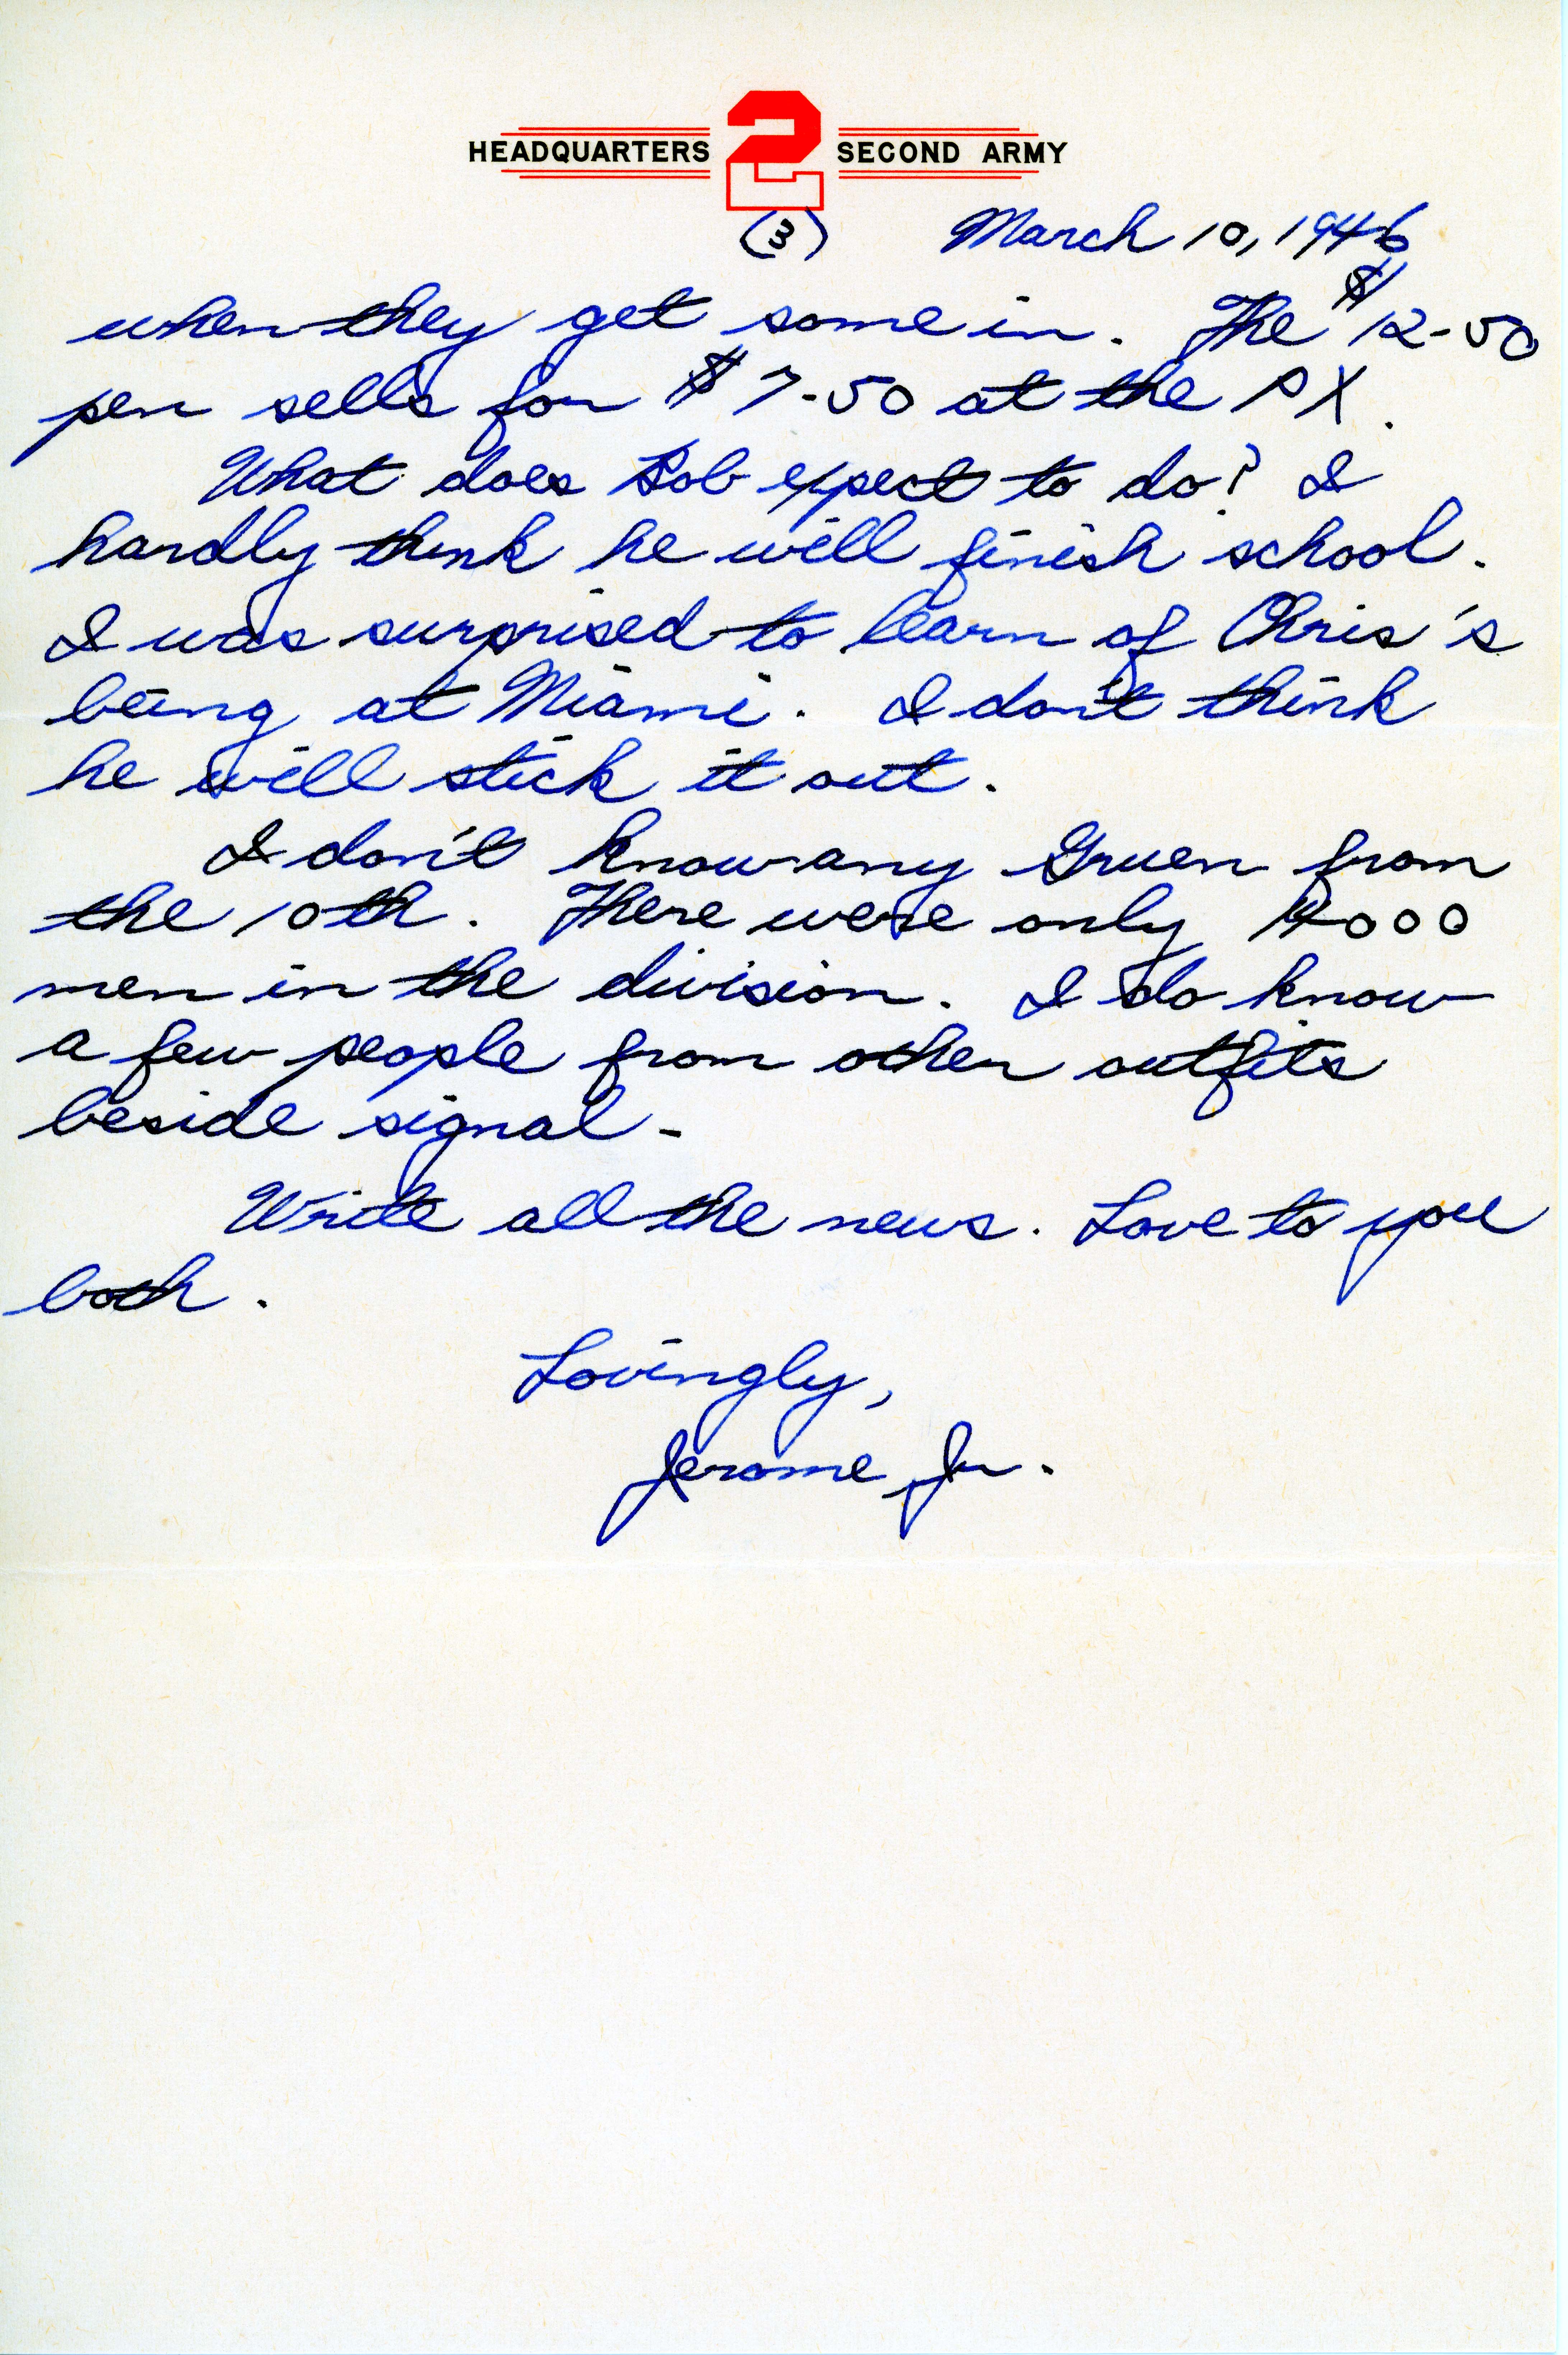 HEADQUARTERS 2 SECOND ARMY
(3) March 10, 1946
when they get some in. The $12-50
pen sells for $7-50 at the PX.
What does Bob expect to do? I
hardly think he will finish school.
I was surprised to learn of Chris's
being at Miami. I don't think
he will stick it out.
I don't know any Gruen from
the 10th. There were only 14000
men in the division. I do know
a few people from other outfits
beside signal-
Write all the news. Love to you
both.
Lovingly,
Jerome, Jr.